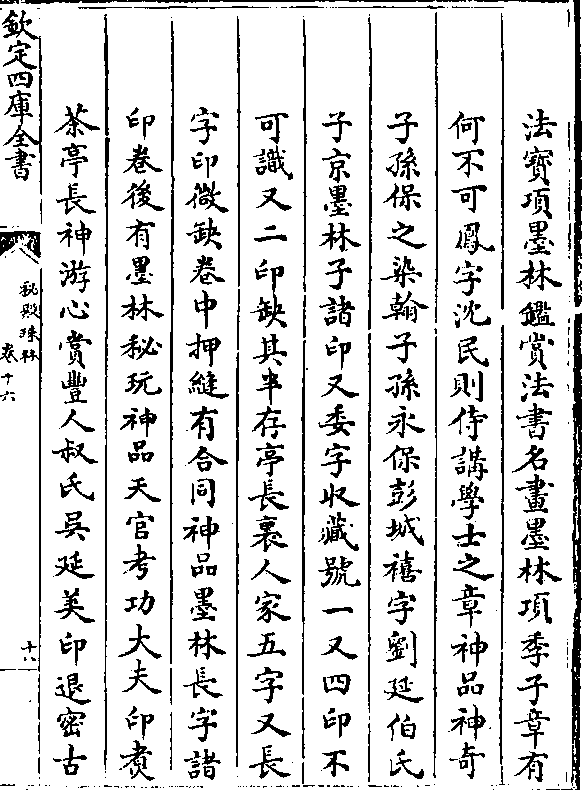 法寶項墨林鑑賞法書名畫墨林項季子章有
何不可鳳字沈民則侍講學士之章神品神奇
子孫保之染翰子孫永保彭城禧字劉延伯氏
子京墨林子諸印又委字收藏號一又四印不
可識又二印缺其半存亭長裏人家五字又長
字印微缺卷中押縫有合同神品墨林長字諸
印卷後有墨林秘玩神品天官考功大夫印煑
茶亭長神游心賞豐人叔氏吳延美印退密古
欽定四庫全書
秘殿珠林
卷十六
十八